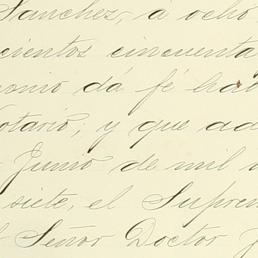 Sanchez, á ocho
cientos cincuenta
monio dá fé hab
otario, y que ad
Junio de mil
siete, el Suprem
Señor Doctor J